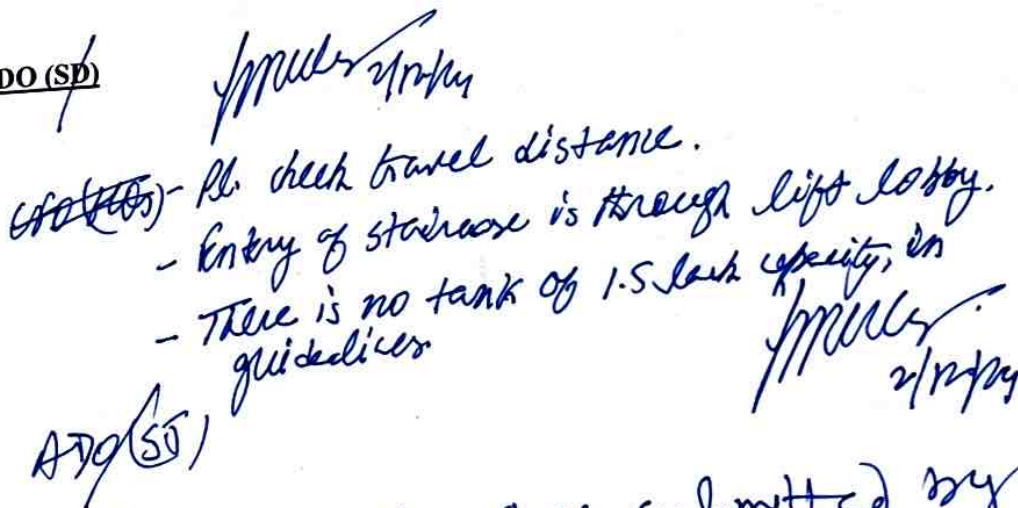 DO (SD)
2/12/24
- Pl. check travel distance.
- Entry of staircase is through lift lobby.
- There is no tank of 1.5 lack capacity, in
guidelines.
2/12/24
ADO (SD)
submitted by